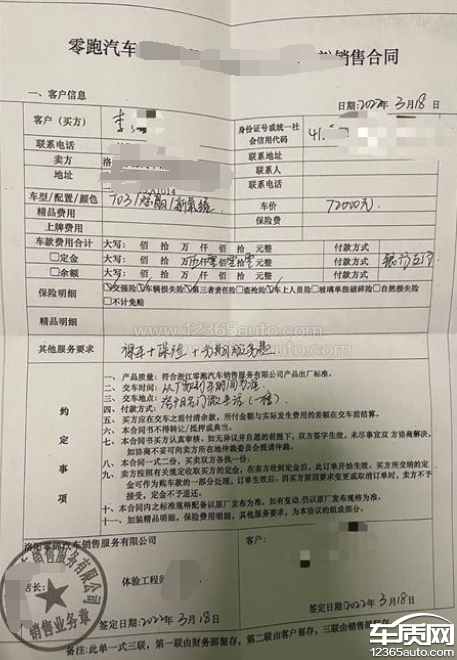 零跑汽车 销售合同
一、客户信息
日期:2022年3月18日
客户（买方） 李 身份证号或统一社会信用代码 41
联系电话 联系地址
卖方 洛 联系人
地址 联系电话
车型/配置/颜色 T03/ 车价 72000元
精品费用 保险费
上牌费用
车款费用合计 大写: 佰 拾 万 仟 佰 拾 元整 付款方式
□定金 大写: 佰 拾 万 仟 佰 拾 元整 付款方式
□余额 大写: 佰 拾 万 仟 佰 拾 元整 付款方式
保险明细 交强险 车辆损失险 第三者责任险 盗抢险 车上人员险 □玻璃单独破碎险 □自然损失险
□不计免赔
精品明细
www.12365auto.com
其他服务要求 裸车+保险+分期服务费
约定事项
一、产品质量: 符合浙江零跑汽车销售服务有限公司产品出厂标准。
二、交车时间:
三、交车地点:
四、付款方式:
五、买方应在交车之前付清余款，所付金额与实际发生费用的差额在交车前结算。
六、本合同书不得转让/抵押或典当。
七、本合同书买方认真审核，如无异议并自愿的前提下，双方签字生效，未尽事宜双方协商解决，如协商不妥可向卖方所在地仲裁委员会提请仲裁。
八、本合同一式二份，买卖双方各执一份。
九、卖方按照有关规定收取买方的定金，在卖方收到定金后，此订单开始生效，买方所交纳的定金可作为购车款的一部分处理，订单生效后，因买方原因要求变更或取消订单时，卖方不予接受，定金不予退还。
十、本合同内之标准规格配备以原厂发布为准，如有变动，仍以原厂发布规格为准。
十一、加装精品明细，保险费用明细，其他服务要求，为本协议的组成部分。
洛阳 汽车销售服务有限公司
客户:
店长: 体验工程师
签定日期:2022年3月18日
签定日期:2022年3月18日
销售服务有限公司
销售业务章
备注: 此单一式三联，第一联由财务部留存，第二联由客户留存，三联由销售部留存。
车质网
12365auto.com